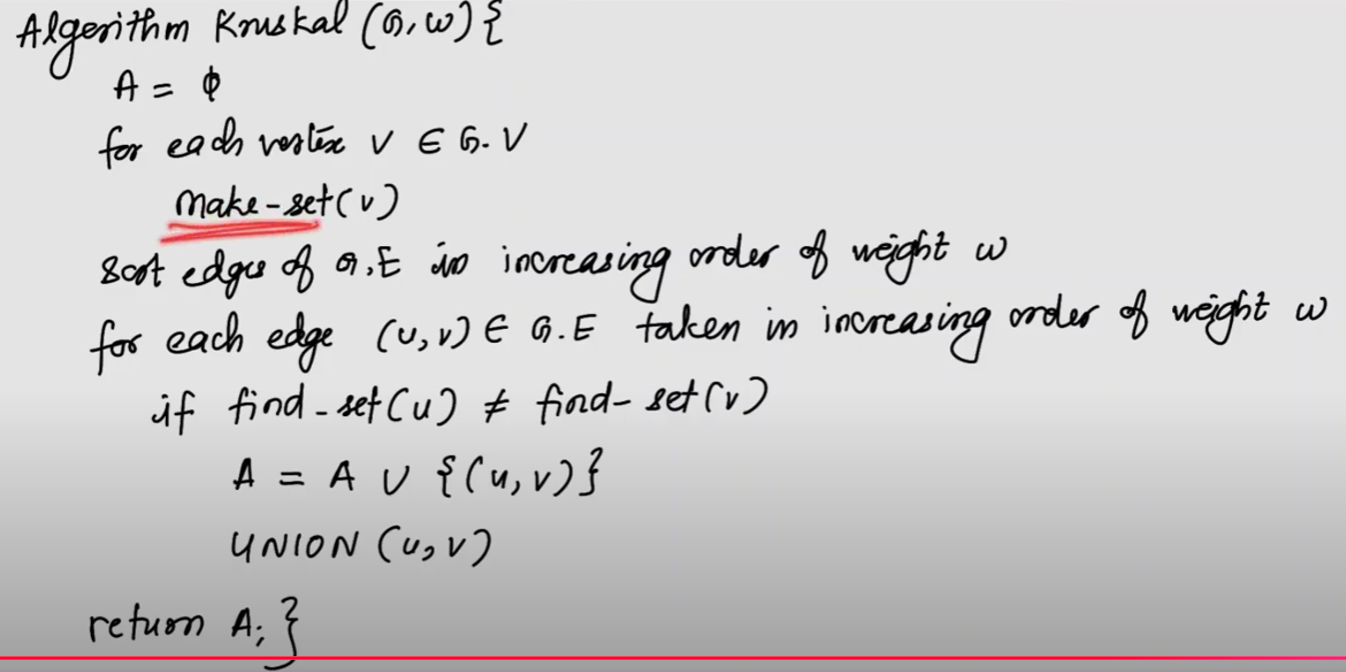 Algorithm Kruskal (G, w) {
A = ϕ
for each vertex v ∈ G. V
Make-set(v)
Sort edges of G.E in increasing order of weight w
for each edge (u, v) ∈ G.E taken in increasing order of weight w
if find-set(u) ≠ find-set(v)
A = A ∪ {(u, v)}
UNION (u, v)
return A; }